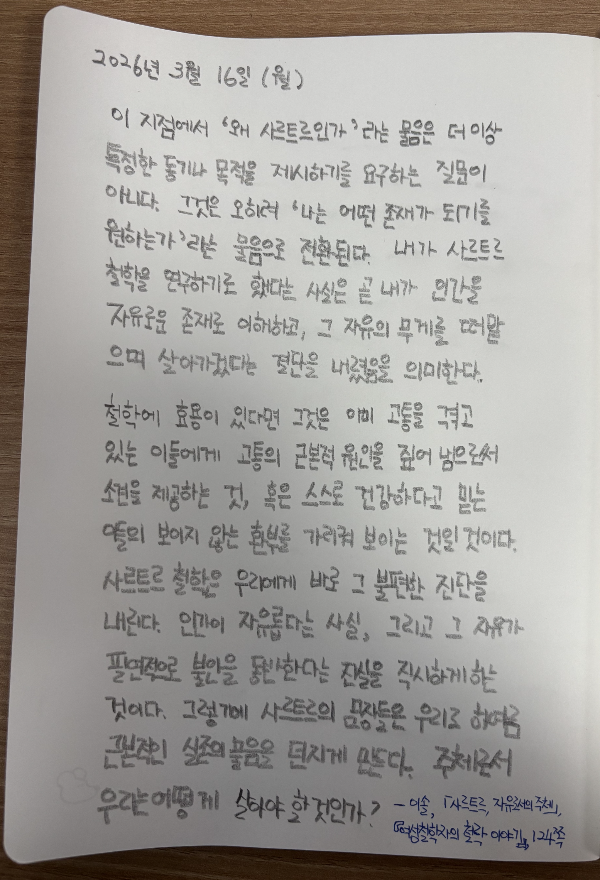 2026년 3월 16일 (월)
이 지점에서 '왜 사르트르인가'라는 물음은 더 이상
특정한 동기나 목적을 제시하기를 요구하는 질문이
아니다. 그것은 오히려 '나는 어떤 존재가 되기를
원하는가'라는 물음으로 전환된다. 내가 사르트르
철학을 연구하기로 했다는 사실은 곧 내가 인간을
자유로운 존재로 이해하고, 그 자유의 무게를 떠맡
으며 살아가겠다는 결단을 내렸음을 의미한다.
철학에 효용이 있다면 그것은 이미 고통을 겪고
있는 이들에게 고통의 근본적 원인을 짚어 냄으로써
소견을 제공하는 것, 혹은 스스로 건강하다고 믿는
이들의 보이지 않는 환부를 가리켜 보이는 것일 것이다.
사르트르 철학은 우리에게 바로 그 불편한 진단을
내린다. 인간이 자유롭다는 사실, 그리고 그 자유가
필연적으로 불안을 동반한다는 진실을 직시하게 하는
것이다. 그렇기에 사르트르의 문장들은 우리로 하여금
근본적인 실존의 물음을 던지게 만든다. 주체로서
우리는 어떻게 살아야 할 것인가?
- 이솔, 「사르트르, 자유로서의 주체」,
『여성철학자의 철학 이야기』, 124쪽